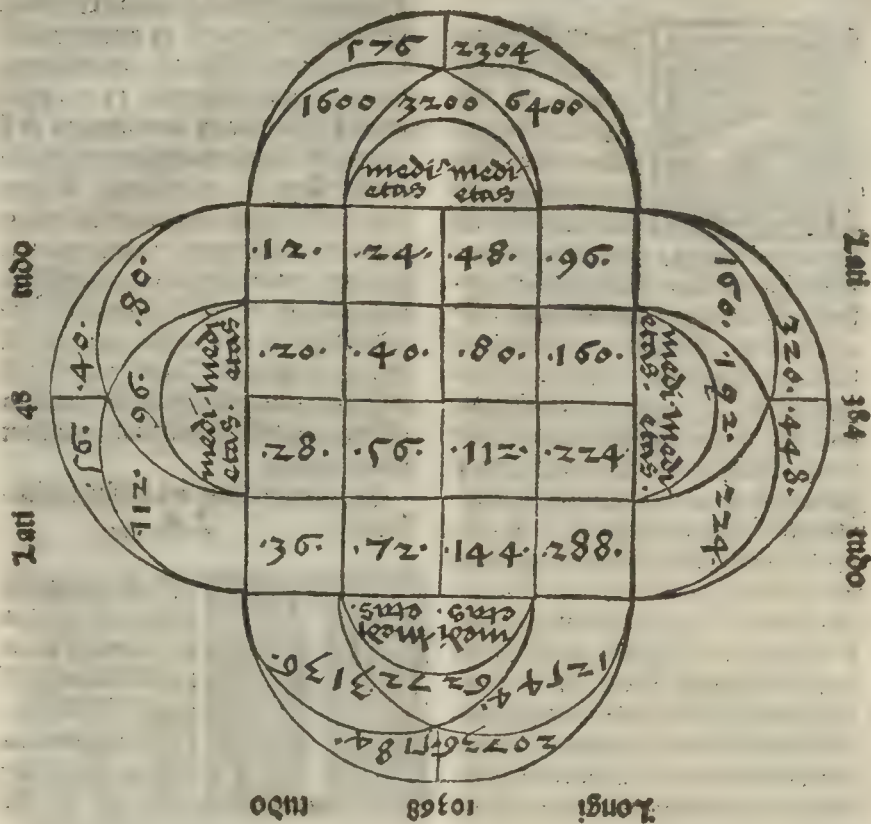 576 2304
1600 3200 6400
medi medi
etas etas
·12· ·24· ·48· ·96·
·20· ·40· ·80· ·160·
·28· ·56· ·112· ·224
·36· ·72· ·144· ·288·
Lati 48 tudo
56· ·40·
·112 ·96· ·80·
medi· medi
etas. etas
Lati 384 tudo
320· ·448·
160· 192· 224·
medi· medi
etas. etas
medi· medi
etas. etas.
12544· 6272 3136·
20736 5184·
Longi 10368 tudo